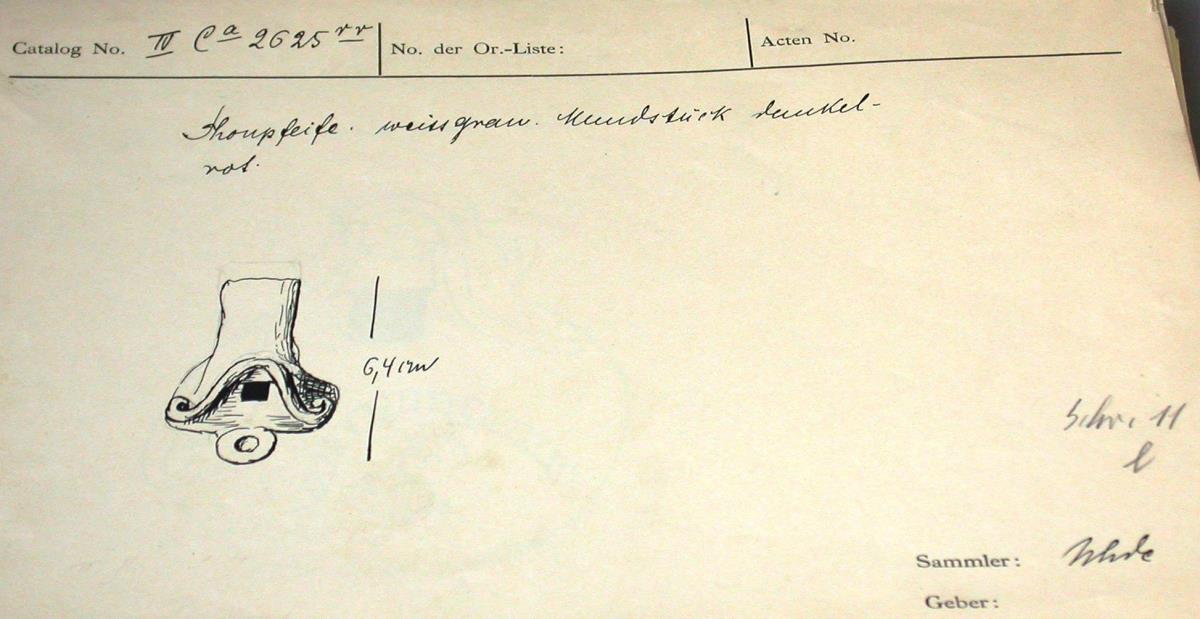 Catalog No. IV Ca 2625 rr No. der Or.-Liste: Acten No.
Thonpfeife. weissgrau. Mundstück dunkel-
rot.
6,4 cm
Schr. 11
l
Sammler: Uhde
Geber: